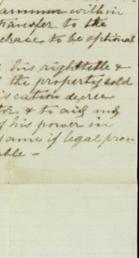 annum within
transfer to the
chase to be optional
his right title &
the property sold
cation decree
& to aid my
his power in
same if legal pro
able –